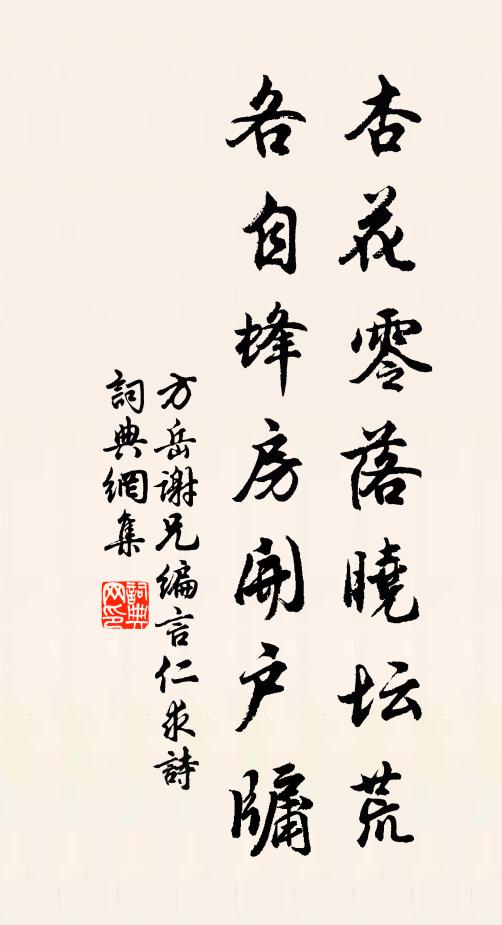 杏花零落曉坛荒
各自蜂房開户牖
方岳謝兄编言仁求詩
詞典網集
詞典网印